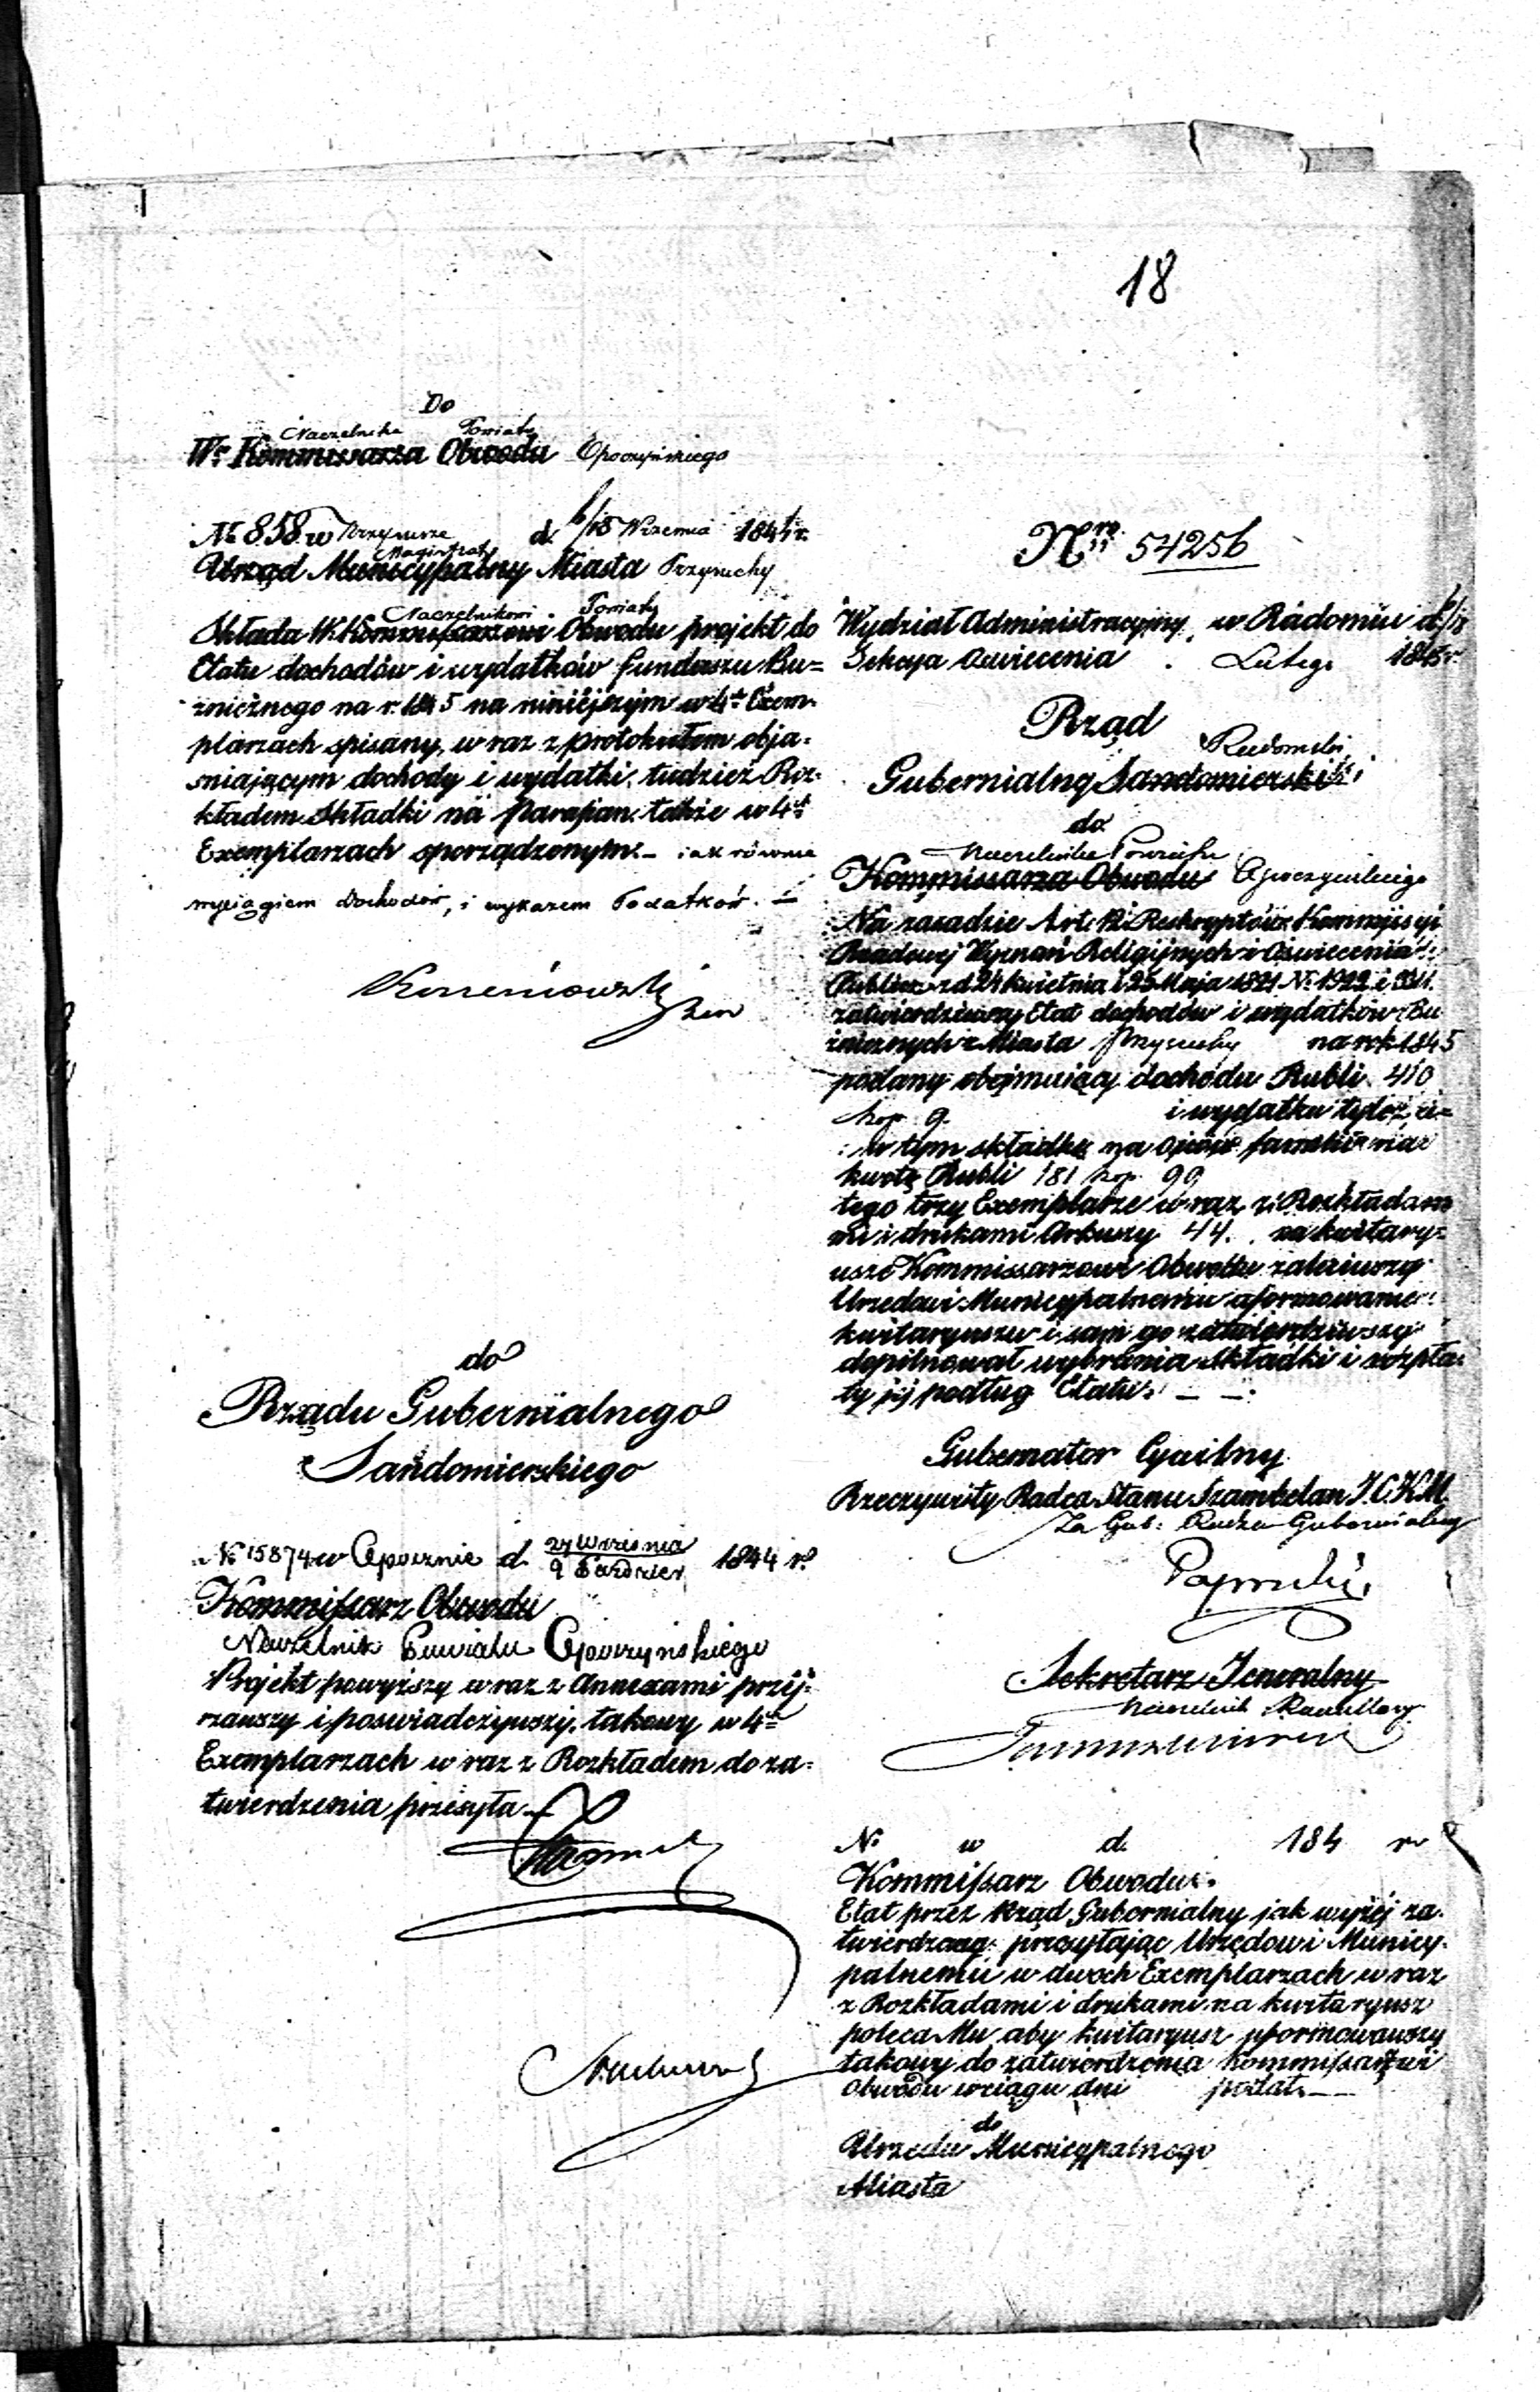 18
Do
Naczelnika Powiatu
Wº Kommissarza Obwodu Opoczyńskiego
Nº 858 w Przysusze d. 6/18 Wrzesnia 1844 r.
Magistrat
Urząd Municypalny Miasta Przysuchy
Naczelnikowi Powiatu
Składa W. Kommissarzowi Obwodu projekt do
Etatu dochodów i wydatków funduszu Bu=
żnicznego na r. 1845 na niniejszym w 4ch Exem-
plarzach spisany, w raz z protokułem obja-
sniającym dochody i wydatki, tudzież Roz-
kładem Składki na Parafian także w 4ch
Exemplarzach sporządzonym – iak równie
wyciągiem dochodów, i wykazem Podatków. –
do
Rządu Gubernialnego
Sandomierskiego
Nº 15874 w Opocznie d. 27 Wrzesnia / 9 Paździer 1844 rº
Kommissarz Obwodu
Naczelnik Powiatu Opoczyńskiego
Projekt powyższy w raz z Annexami przej-
rzawszy i poswiadczywszy, takowy w 4ch
Exemplarzach w raz z Rozkładem do za-
twierdzenia przesyła –
Nrº 54256
Wydział Administracyjny w Radomiu d.
Sekcya Oswiecenia Lutego 1845 r.
Rząd
Radomski
Gubernialny Sandomierski
do
Naczelnika Powiatu
Kommissarza Obwodu Opoczyńskiego
Na zasadzie Art. 12 i Reskryptów Kommissyi
Rządowej Wyznań Religijnych i Oświecenia
Public. z d. 24 Kwietnia i 25 Maja 1821 Nº 1922 i
zatwierdziwszy Etat dochodów i wydatków Bu
żnicznych z Miasta Przysuchy na rok 1845
podany obejmujący dochodu Rubli 410
kop 9. i wydatku tyleż, a=
w tym składkę na ojców familii w raz
kwotę Rubli 181 kop. 99
tego trzy Exemplarze w raz z Rozkładam
mi i drukami Arkuszy 44. na kwitary=
usze Kommissarzowi Obwodu
Urzędowi Municypalnemu uformowanie
kwitaryuszu i sam go zatwierdziwszy
dopilnował wybrania Składki i rozpła-
ty jej podług Etatu. – –
Gubernator Cywilny
Rzeczywisty Radca Stanu Szambelan J.C.K.M.
Za Gub: Radca Gubernialny
Sekretarz Jeneralny
Naczelnik Kancellary
Nº w d. 184 r.
Kommissarz Obwodu
Etat przez Rząd Gubernialny jak wyżej za-
twierdzony przesyłając Urzędowi Municy-
palnemu w dwoch Exemplarzach w raz
z Rozkładami i drukami na kwitaryusz
poleca Mu aby kwitaryusz uformowawszy
takowy do zatwierdzenia Kommissarzowi
Obwodu w ciągu dni podał. –
do
Urzedu Municypalnego
Miasta